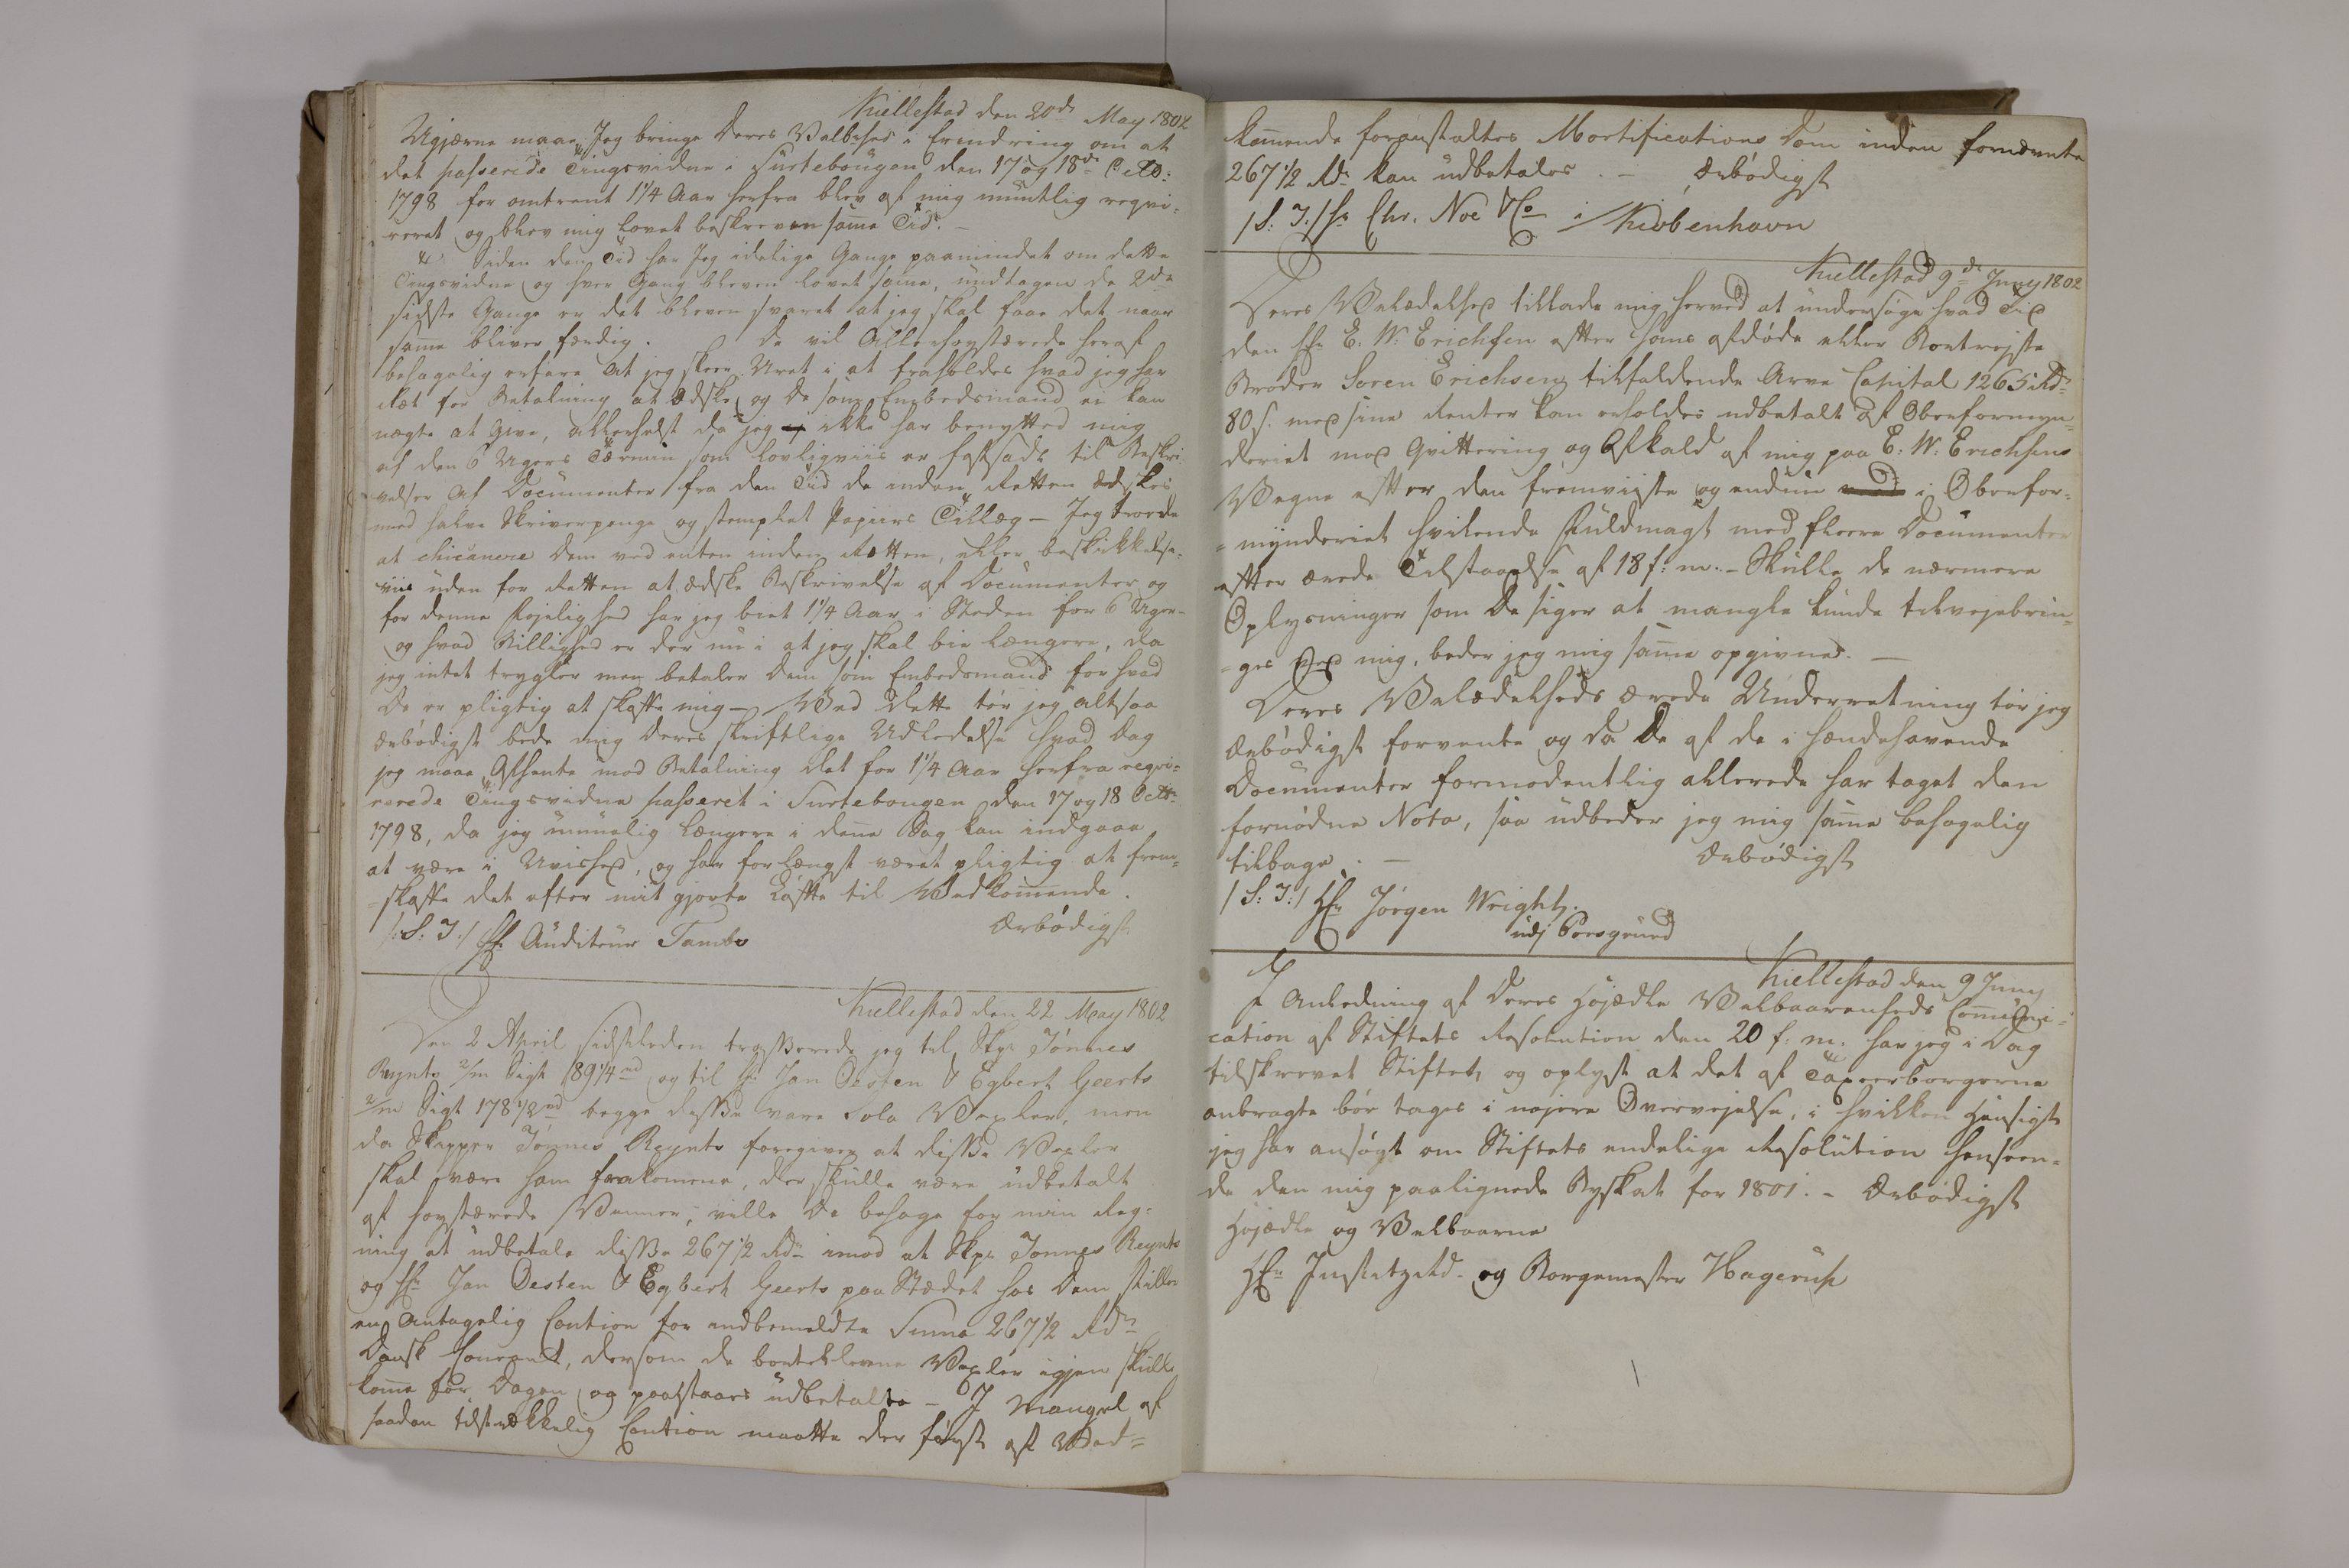 Kiellestad den 20de May 1802
Ugjærne maae Jeg bringe Deres Velbrhed i Erindring om at
det passerede Tingsvidne i Surtebougen den 17 og 18de Octb:
1798 for omtrent 1 1/4 Aar herfra blev af mig mundtlig reqvi=
reret og blev mig lovet beskreven samme Tid. –
Siden den Tid har Jeg idelige Gange paamindet om dette
Tingsvidne og hver Gang bleven lovet samme, undtagen de 2de
sidste Gange er det bleven svaret at jeg skal faae det naar
samme bliver færdig. De vil Allerhøystærede heraf
behagelig erfare at jeg skeer Uret i at fraholdes hvad jeg har
Ræt for Betalning at ædske og De som Embedsmand ei kan
nægte at give, allerhelst da jeg ikke har benytted mig
af den 6 Ugers Termin som lovligviis er fastsadt til Beskri
velser af Documenter fra den Tid de inden Retten ædskes
med halve Skriverpenge og stemplet Papiirs Tillæg – Jeg troede
at chicanere Dem ved enten inden Retten, eller beskikkelse=
viis uden for Retten at ædske Beskrivelse af Documenter og
for denne Føjelighed har jeg biet 1 1/4 Aar i Steden for 6 Uger –
og hvad Billighed er der nu i at jeg skal bie længere, da
jeg intet trygler men betaler Dem som Embedsmand for hvad
De er pligtig at skaffe mig – Ved dette tør jeg altsaa
ærbødigst bede mig Deres skriftlige Udledelse hvad Dag
jeg maae Afhente mod Betalning det for 1 1/4 Aar herfra reqvi=
rerede Tingsvidne passeret i Surtebougen den 17 og 18 Octbr
1798, da jeg umuelig længere i denne Sag kan indgaae
at være i Uvished, og har forlængst været pligtig at frem=
=skaffe det efter mit gjorte Løfte til Vedkommende.
Ærbødigst
/:S: T:/ Hr Auditeur Tambs
Kiellestad den 22 May 1802
Den 2 April sidstleden trasserede jeg til Skpr Jönnes
Reynts 2/m Sigt 89 1/4 rd og til Hr Jan Oesten & Egbert Geerts
2/m Sigt 178 1/2 rd begge disse vare Sola Vexler, men
da Skipper Jönnes Reynts foregiver at disse Vexler
skal være ham frakomne, der skulle være udbetalt
af høystærede Venner, ville De behage for min Reg=
ning at udbetale disse 267 1/2 Rdr imod at Skpr Jonnes Reynts
og Hr Jan Oesten & Egbert Geerts paa Stædet hos Dem stiller
en Antagelig Caution for andbemeldte Suma 267 1/2 Rdr
Dansk Courant, dersom de bortblevne Vexler igjen skulle
komme for Dagen og paastaaes udbetalte – I Mangel af
saadan tilstrækkelig Caution maatte der først af Ved=
kommende foranstaltes Mortifications Dom inden fornævnte
267 1/2 Rdr kan udbetales. – Ærbødigst
/S: T:/ Hr Chr. Noe & Co i Kiøbenhavn
Kiellestad 9de Juny 1802
Deres Velædelhed tillade mig herved at undersøge hvad Tid
den Hr E. W. Erichsen efter hans afdøde eller Bortrejste
Broder Soren Erichsen tilfaldende Arve Capital 1265 Rdr
80 s. med sine Renter kan erholdes udbetalt af Oberformyn=
deriet mod Qvittering og Afkald af mig paa E. W. Erichsens
Vegne efter den fremviiste og endnu i Oberfor=
=mynderiet hvilende Fuldmagt med fleere Documenter
efter ærede Tilstaaelse af 18 f: m. – Skulle de nærmere
Oplysninger som De siger at mangle kunde tilvejebrin=
=ges ved mig, beder jeg mig samme opgivne. –
Deres Velædelheds ærede Underretning tør jeg
ærbødigst forvente og da De af de i Hændehavende
Documenter formodentlig allerede har taget den
fornødne Nota, saa udbeder jeg mig samme behagelig
tilbage. – Ærbødigst
/S: T:/ Hr Jörgen Wright.
udj Porsgrund
Kiellestad den 9 Juny
I Anledning af Deres Højædle Velbaarenheds Communi=
cation af Stiftets Resolution den 20 f. m. har jeg i Dag
tilskrevet Stiftet, og oplyst at det af Taxeerborgerne
anbragte bør tages i nøjere Overvejelse, i hvilken Hensigt
jeg har ansøgt om Stiftets endelige Resolution henseen=
de den mig paalignede Byskat for 1801. – Ærbødigst
Højædle og Velbaarne
Hr Justitzrd. og Borgemester Hagerup